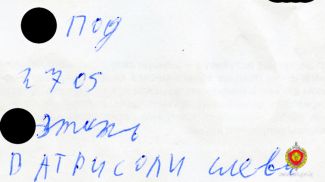 Под
2705
этаж
ПАТРИСОЛИ слева